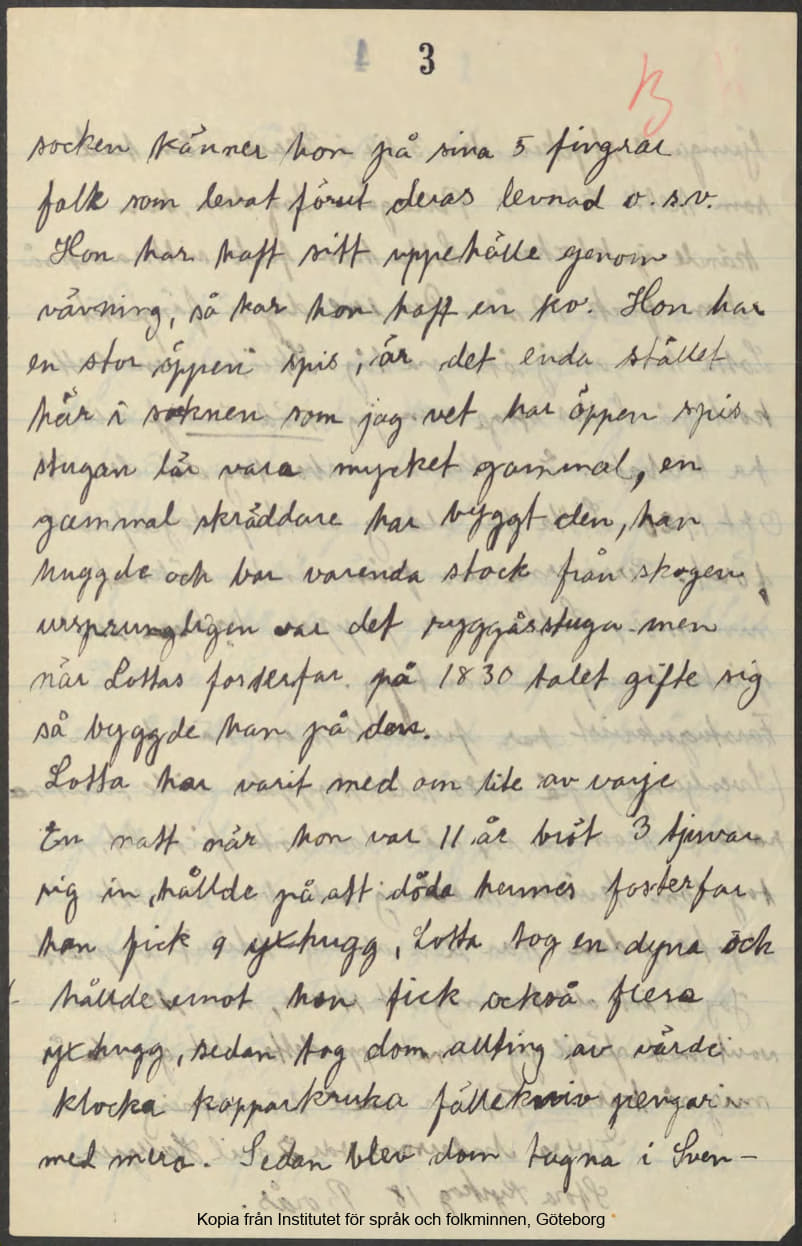 3
B
socken känner hon på sina 5 fingrar
folk som levat förut deras levnad o.s.v.
Hon har haft sitt uppehälle genom
vävning, så har hon haft en ko. Hon har
en stor öppen spis, är det enda stället
här i soknen som jag vet har öppen spis
stugan lär vara mycket gammal, en
gammal skräddare har byggt den, han
huggde och bar varenda stock från skogen
ursprungligen var det ryggåsstuga men
när Lottas fosterfar på 1830 talet gifte sig
så byggde han på den.
Lotta har varit med om lite av varje
En natt när hon var 11 år bröt 3 tjuvar
sig in, hållde på att döda hennes fosterfar
han fick 9 yxhugg, Lotta tog en dyna och
hållde emot, hon fick också flera
yxhugg, sedan tog dom allting av värde
klocka kopparkruka fällekniv pengar
med mera. Sedan blev dom tagna i Sven-
Kopia från Institutet för språk och folkminnen, Göteborg